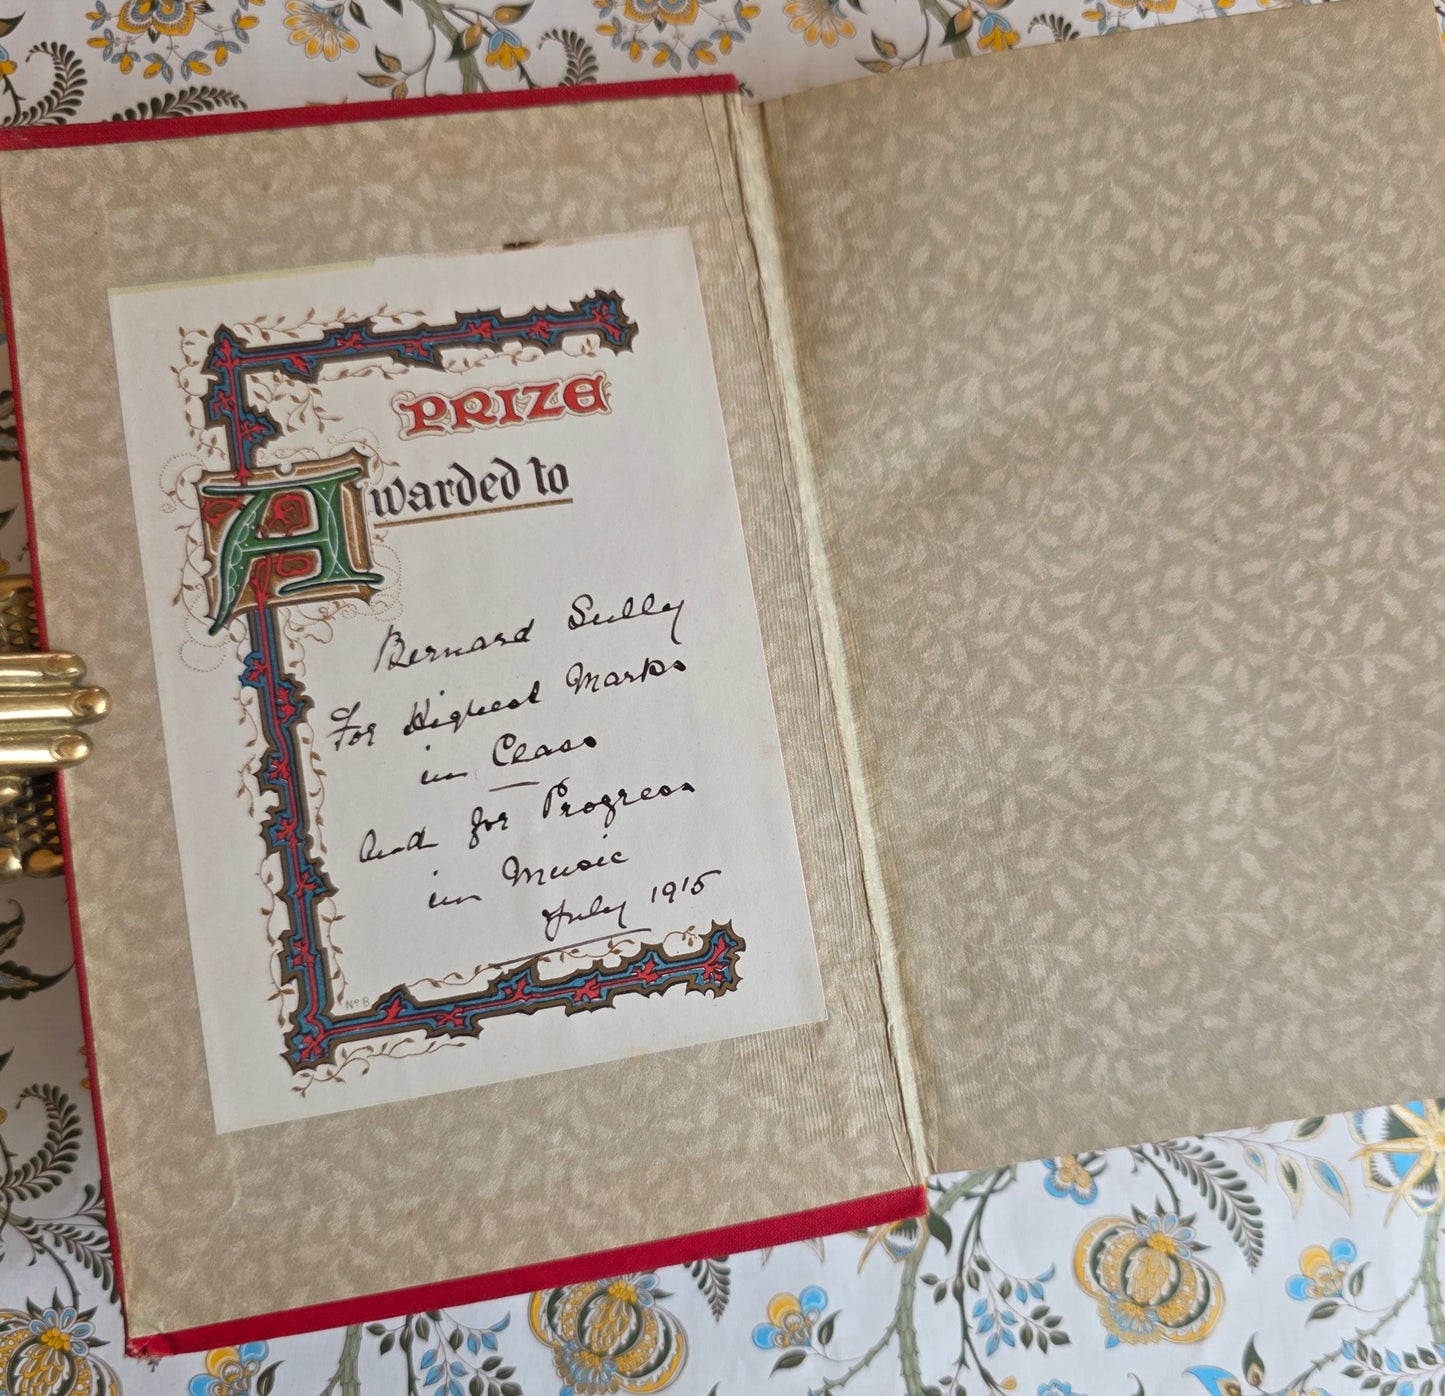 PRIZE
Awarded to
Bernard Sully
For Highest Marks
in Class
And for Progress
in Music
July 1915
Nº 8